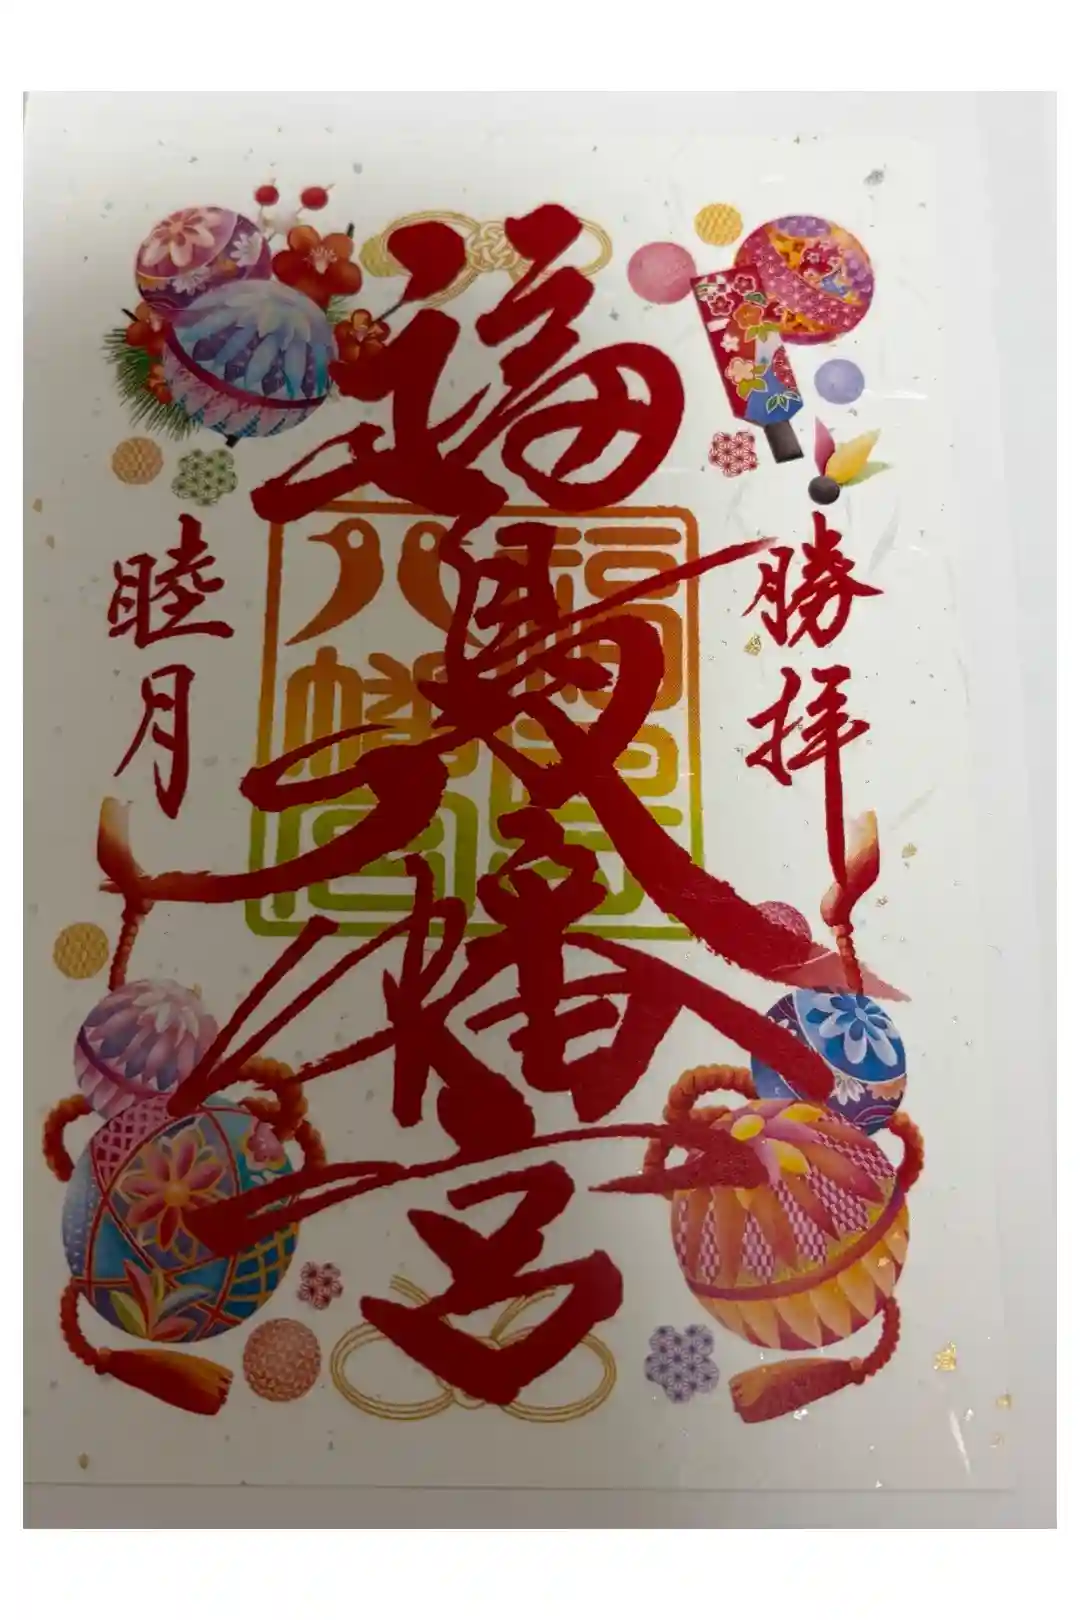 勝拝
福島八幡宮
睦月
八幡宮